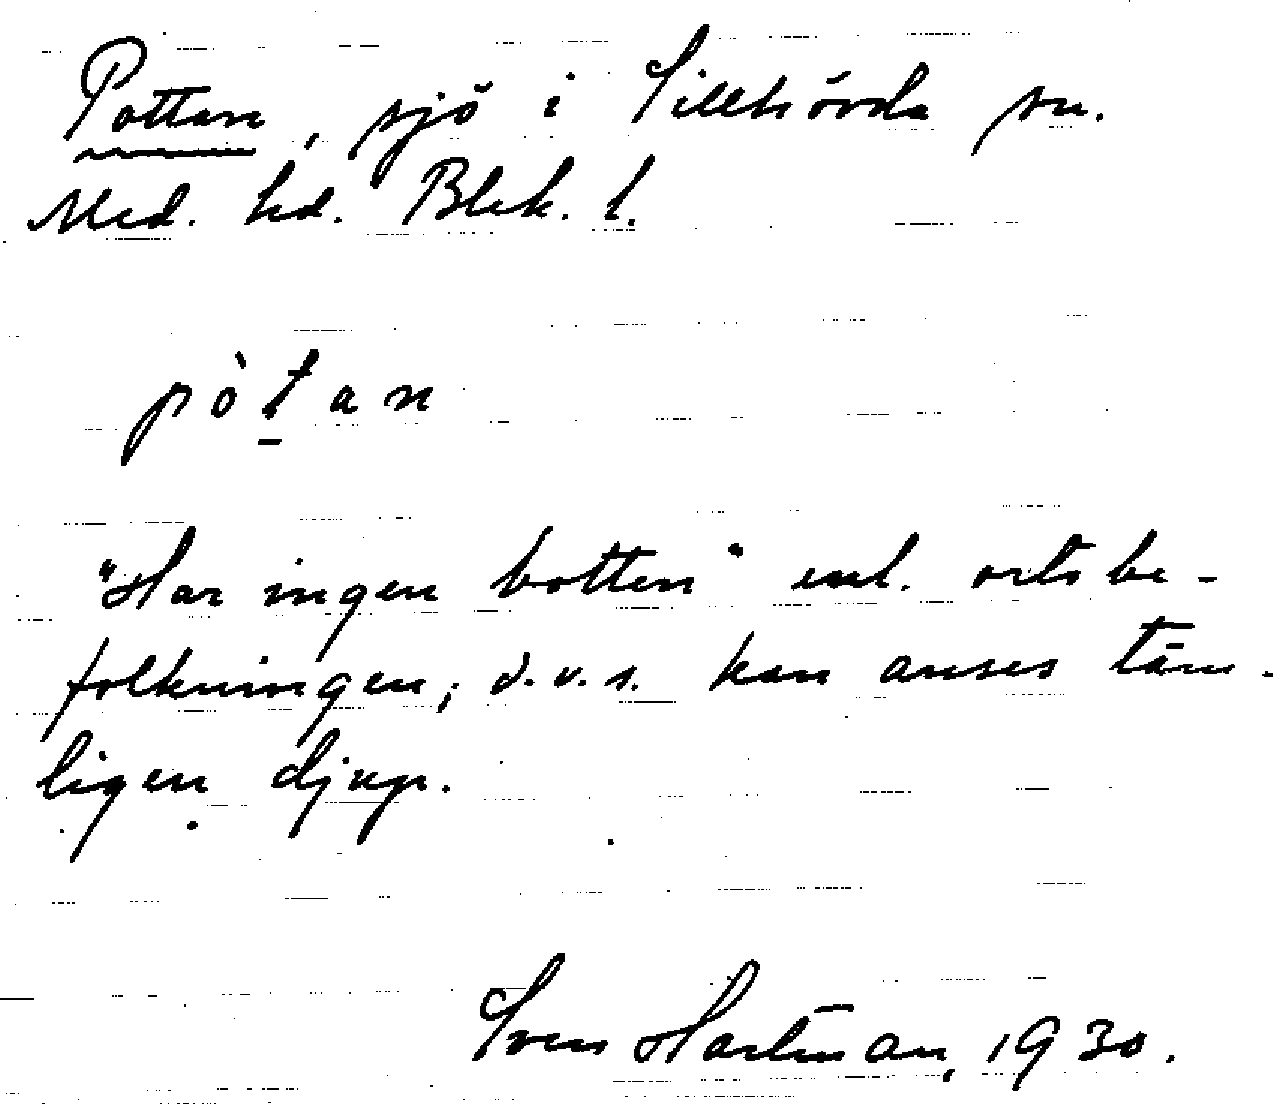 Pottan, sjö i Sillhövda sn.
Med. hd. Blek. l.
pòt̲an
"Har ingen botten" enl. ortsbe-
folkningen, d.v.s. kan anses täm-
ligen djup.
Sven Hartman, 1930.